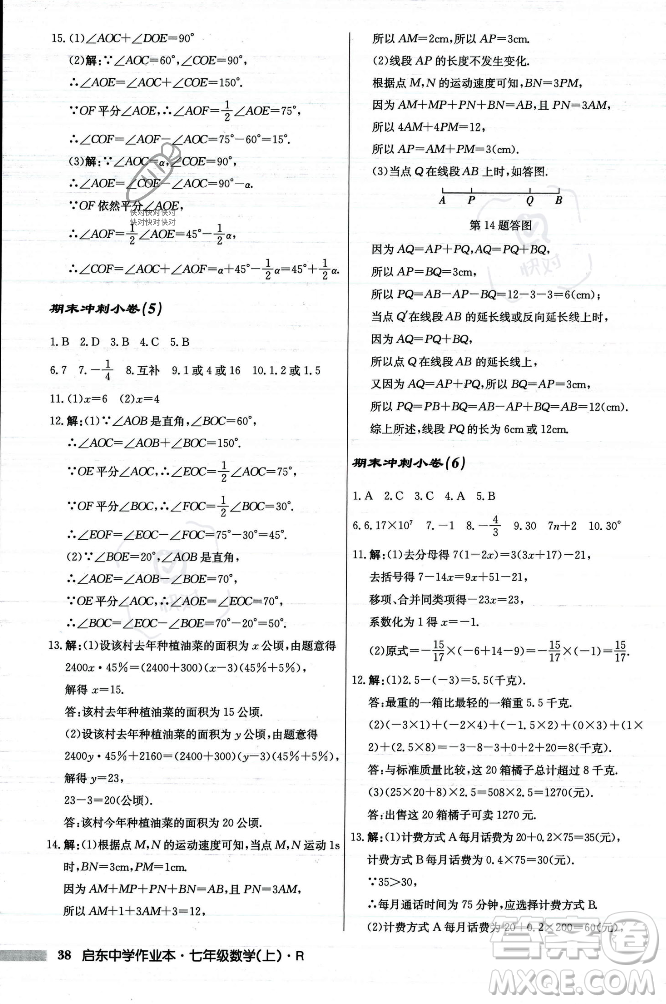 15.(1)∠AOC+∠AOE=90°
(2)解:∵∠AOE=∠COE-∠AOC,
∴∠AOE=∠COE-∠AOC=150°.
∵OF平分∠AOE,∴∠AOF=1/2∠AOE=75°,
∴∠COF=∠AOF-∠AOC=75°-60°=15°.
(3)解:∵∠AOE=∠COE-∠AOC=α,
∴∠AOE=∠COE-∠AOC=90°-α.
∵OF依然平分∠AOE,
快对快对快对
快对快对快对
∴∠COF=∠AOC+∠AOF=α+45°-1/2α=45°+1/2α.
期末冲刺小卷(5)
1.B 2.D 3.B 4.C 5.B
6.7 7.-1/4 8.互补 9.1或4或16 10.2或1.5
11.(1)x=6 (2)x=4
12.解:(1)∵∠AOB是直角,∠BOC=60°,
∴∠AOC=∠AOB+∠BOC=150°.
∵OE平分∠AOC,∴∠EOC=1/2∠AOC=75°,
∵OF平分∠BOC,∴∠FOC=1/2∠BOC=30°,
∴∠EOF=∠EOC-∠FOC=45°.
(2)∵∠BOE=20°,∠AOB是直角,
∴∠AOE=∠AOB-∠BOE=70°,
∴∠AOC=2∠AOE=140°.
13.解:(1)设该村去年种植油菜的面积为x公顷,由题意得
2400x·45%=(2400+300)(x-3)(45%-5%),
解得x=15.
答:该村去年种植油菜的面积为15公顷.
(2)设该村去年种植油菜的面积为y公顷,由题意得
2400y·45%+2160=(2400+300)(y-3)(45%+5%),
解得y=23,
23-3=20(公顷).
答:该村今年种植油菜的面积为20公顷.
14.解:(1)根据点M,N的运动速度可知,当点M,N运动1s
时,BN=3cm,PM=1cm.
因为AM+MP+PN+BN=AB,且PN=3AM,
所以AM+1+3AM+3=12,
38 启东中学作业本·七年级数学(上)·R
所以AM=2cm,所以AP=3cm.
(2)线段AP的长度不发生变化.
根据点M,N的运动速度可知,BN=3PM.
因为AM+MP+PN+BN=AB,且PN=3AM,
所以4AM+4PM=12,
所以AP=AM+PM=3cm.
(3)当点Q在线段AB上时,如答图.
A P Q B
第14题答图
因为AQ=AP+PQ,AQ=PQ+BQ,
所以AP=BQ.
因为AP=3cm,所以BQ=3cm,
所以PQ=AB-AP-BQ=12-3-3=6(cm);
当点Q'在线段AB的延长线上时,
因为AQ'=AP+PQ',AQ'=PQ'+BQ',
所以AP=BQ'.
又因为AP=3cm,所以BQ'=3cm,
所以PQ'=AB+BQ'-AP=12cm.
综上所述,PQ的长为6cm或12cm.
期末冲刺小卷(6)
1.A 2.C 3.C 4.A 5.B
6.6.17×10⁷ 7.-1 8.-4/3 9.30 7n+2 10.30°
11.解:(1)去分母得7(1-2x)=3(3x+1)-21,
去括号得7-14x=9x+3-21,
移项、合并同类项得-23x=-25? 
系数化为1得x=-1.
(2)原式=-15/17×(-6+14-9)=-15/17×(-1)=15/17.
12.解:(1)2.5-(-3)=5.5(千克).
答:最重的一箱比最轻的一箱重5.5千克.
(2)(-3×1)+(-2×4)+(-1.5×2)+(0×3)+(1×2)+(2.5×8)=8(千克).
答:与标准质量比较,这20箱橘子总计超过8千克.
(3)(25×20+8)×2.5=508×2.5=1270(元).
答:出售这20箱橘子可卖1270元.
13.解:(1)计费方式A每月话费为20+0.2×75=35(元),
计费方式B每月话费为0.4×75=30(元).
∵35>30,
∴每月通话时间为75分钟,应选择方式B.
(2)计费方式A每月话费为(20+0.2x)元,
快对
答案圈
MXQE.COM